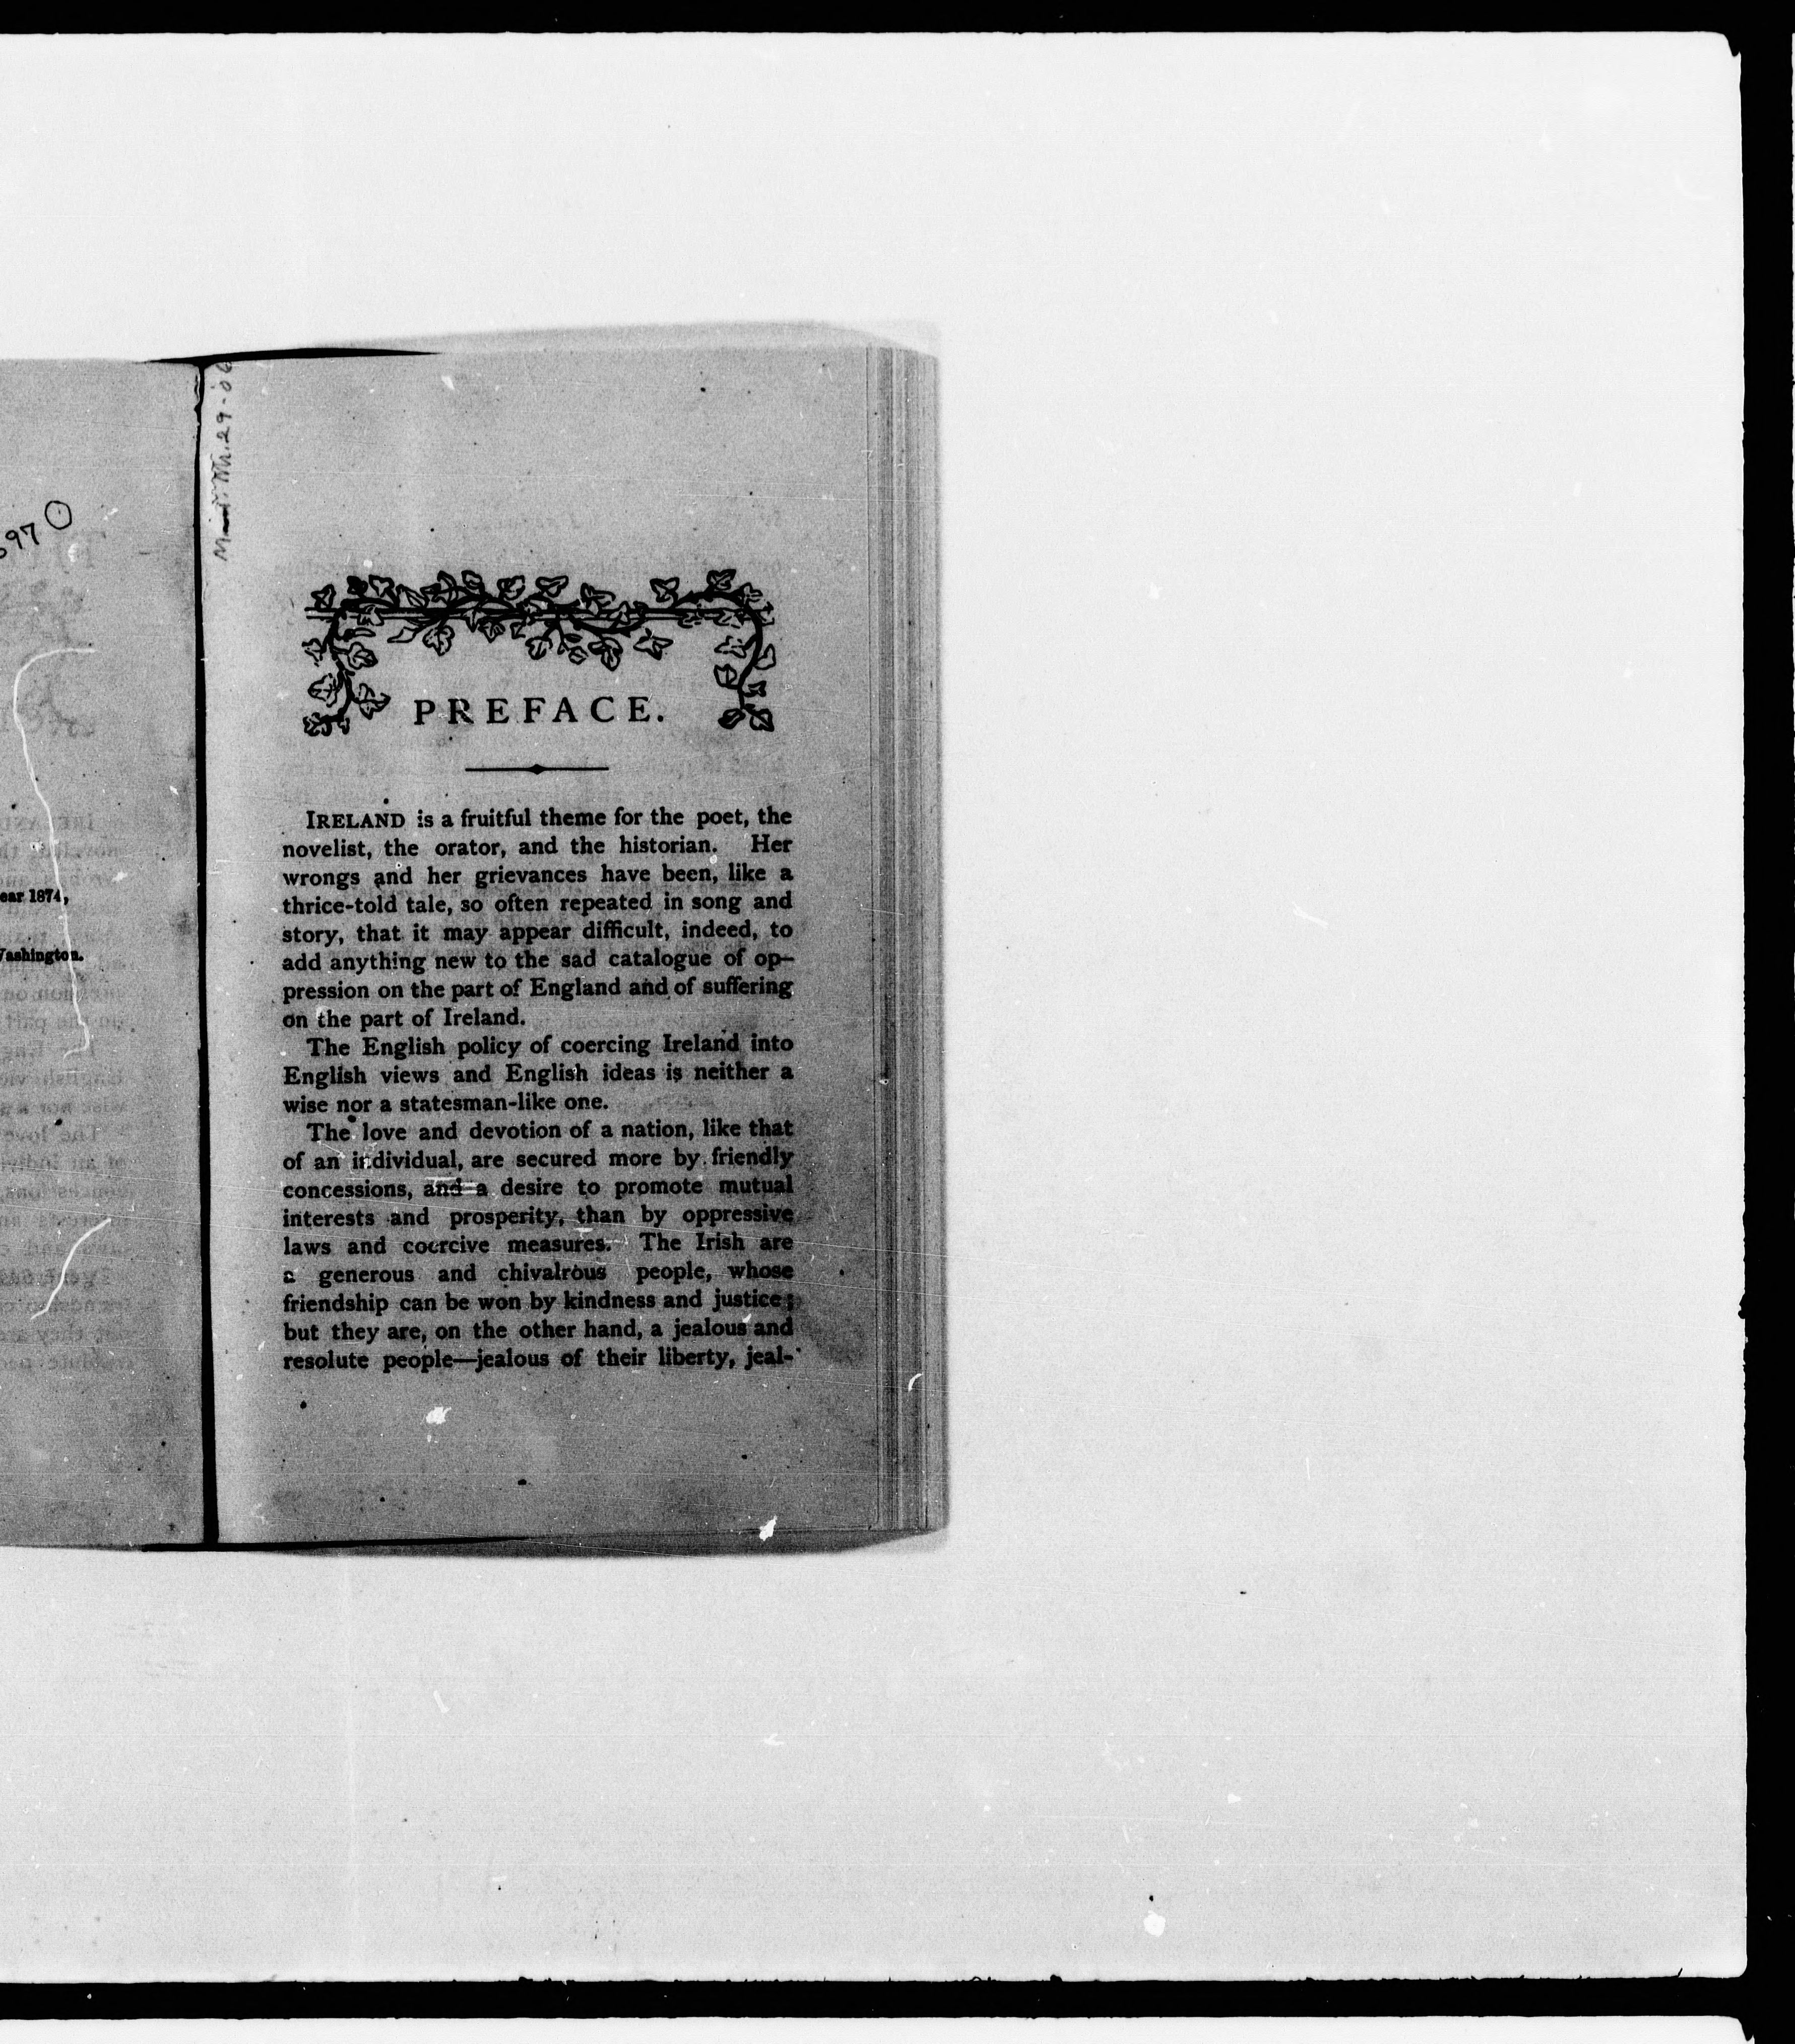 697
ear 1874,
Washington.
29-06
PREFACE.
IRELAND is a fruitful theme for the poet, the
novelist, the orator, and the historian. Her
wrongs and her grievances have been, like a
thrice-told tale, so often repeated in song and
story, that it may appear difficult, indeed, to
add anything new to the sad catalogue of op-
pression on the part of England and of suffering
on the part of Ireland.
The English policy of coercing Ireland into
English views and English ideas is neither a
wise nor a statesman-like one.
The love and devotion of a nation, like that
of an individual, are secured more by friendly
concessions, and a desire to promote mutual
interests and prosperity, than by oppressive
laws and coercive measures. The Irish are
a generous and chivalrous people, whose
friendship can be won by kindness and justice;
but they are, on the other hand, a jealous and
resolute people—jealous of their liberty, jeal-